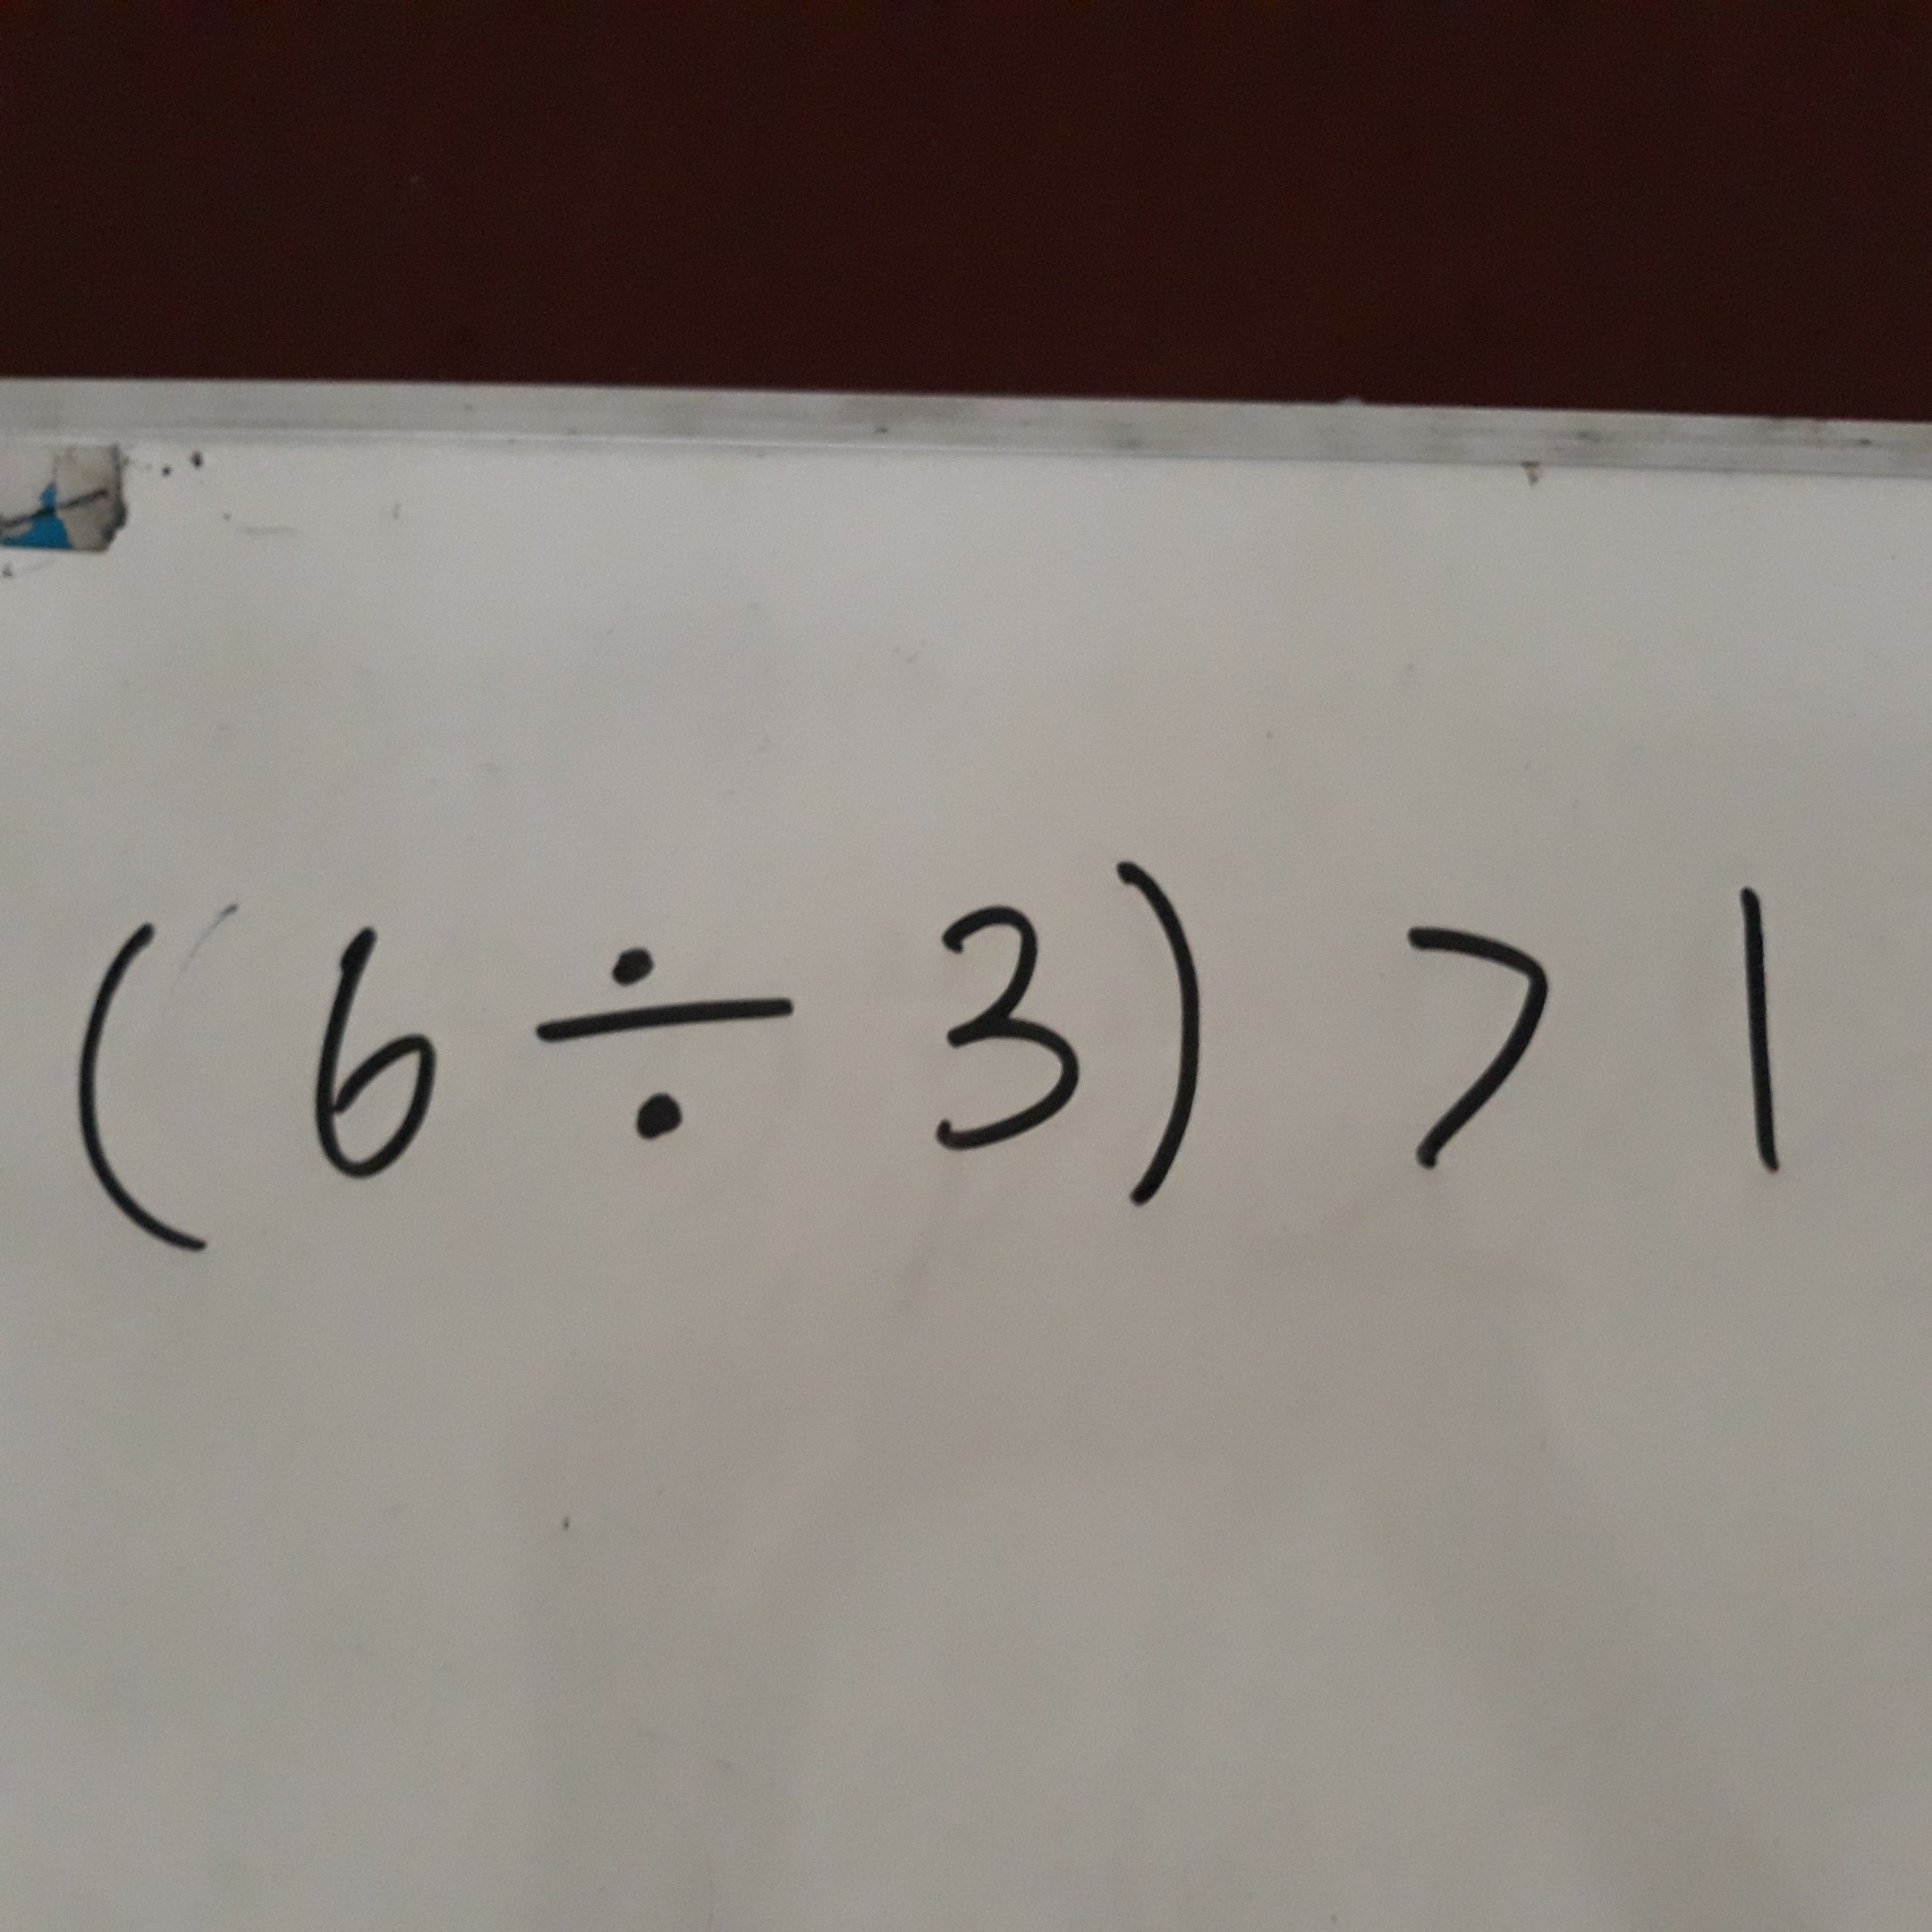 (6 ÷ 3) > 1